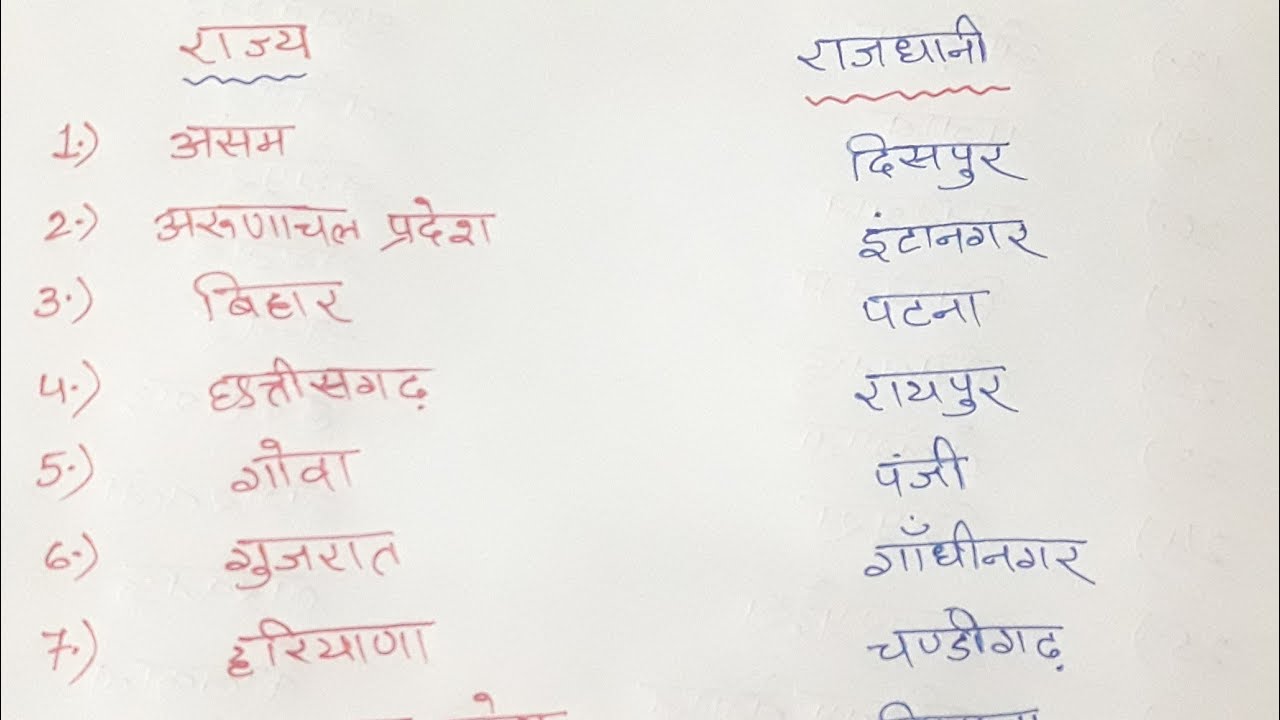 राज्य राजधानी
1.) असम दिसपुर
2.) अरुणाचल प्रदेश इंटानगर
3.) बिहार पटना
4.) छत्तीसगढ़ रायपुर
5.) गोवा पंजी
6.) गुजरात गाँधीनगर
7.) हरियाणा चण्डीगढ़